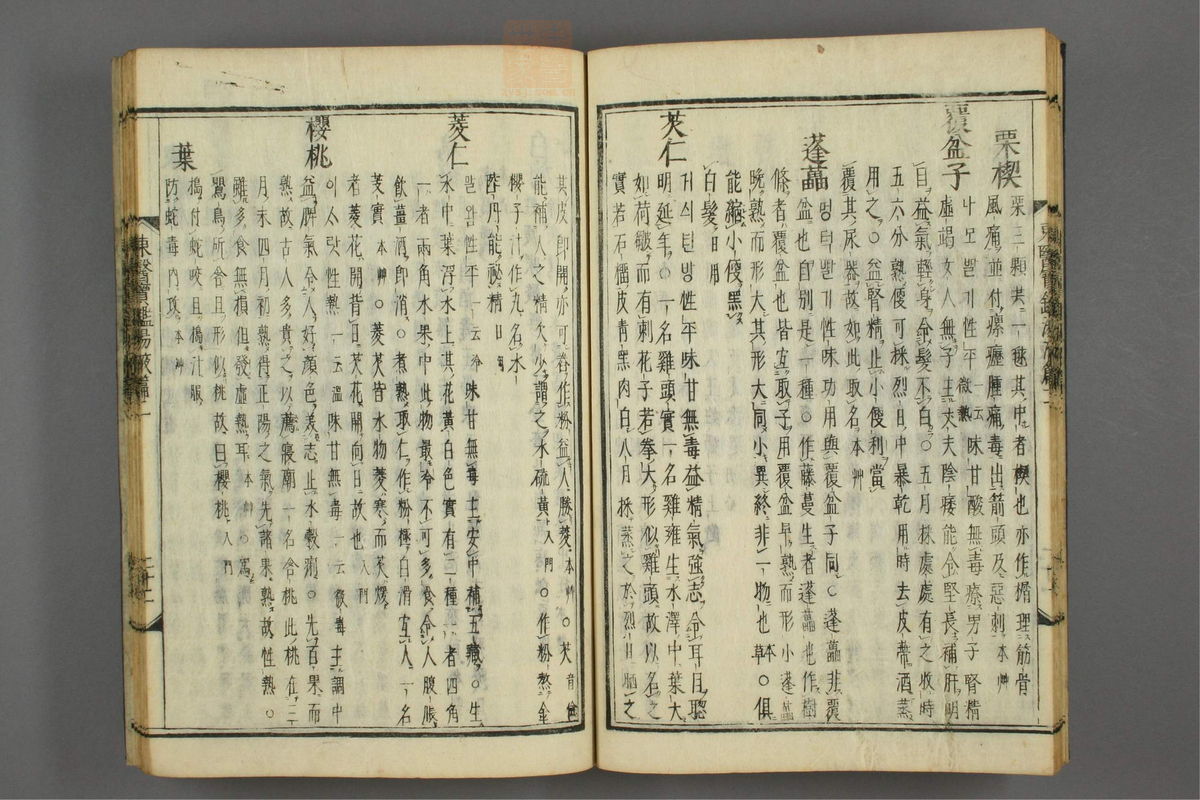 栗楔
栗三顆共一毬其中者楔也亦作㨨理筋骨
風痛並付瘰癧腫痛毒出箭頭及惡刺本艸
覆盆子
나모딸기性平一云微熱味甘酸無毒療男子腎精
虛竭女人無子主丈夫陰痿能令堅長補肝明
目益氣輕身令髮不白○五月採處處有之收時
五六分熟便可採烈日中暴乾用時去皮蔕酒蒸
用之○益腎精止小便利當
覆其尿器故如此取名本艸
蓬虆
멍덕딸기性味功用與覆盆子同○蓬虆非覆
盆也自別是一種○作藤蔓生者蓬虆也作樹
條者覆盆也皆宜取子用覆盆早熟而形小蓬虆
晚熟而形大其形大同小異終非一物也本草○俱
能縮小便黑
白髮日用
芡仁
거싀련밤性平味甘無毒益精氣強志令耳目聰
明延年○一名雞頭實一名雞雍生水澤中葉大
如荷皺而有刺花子若拳大形似雞頭故以名之
實若石榴皮青黑肉白八月採蒸之於烈日晒之
其皮即開亦可舂作粉益人勝菱本艸○芡
能補人之精欠少謂之水硫黃入門○作粉熬金
櫻子汁作丸名水
陸丹能祕精日用
菱仁
말왐性平一云冷味甘無毒主安中補五藏○生
水中葉浮水上其花黃白色實有二種一者四角
一者兩角水果中此物最冷不可多食令人腹脹
飮薑酒即消○煮熟取仁作粉極白滑宜人一名
菱實本艸○菱芡皆水物菱寒而芡煖
者菱花開背日芡花開向日故也入門
櫻桃
이스랏性熱一云溫味甘無毒一云微毒主調中
益脾氣令人好顏色美志止水穀痢○先百果而
熟故古人多貴之以薦寢廟一名含桃此桃在三
月末四月初熟得正陽之氣先諸果熟故性熱○
雖多食無損但發虛熱耳本艸○爲
鸎鳥所含且形似桃故曰櫻桃入門
葉
搗付蛇咬且搗汁服
防蛇毒內攻本艸
東醫寶鑑湯液篇二
東醫寶鑑湯液篇二